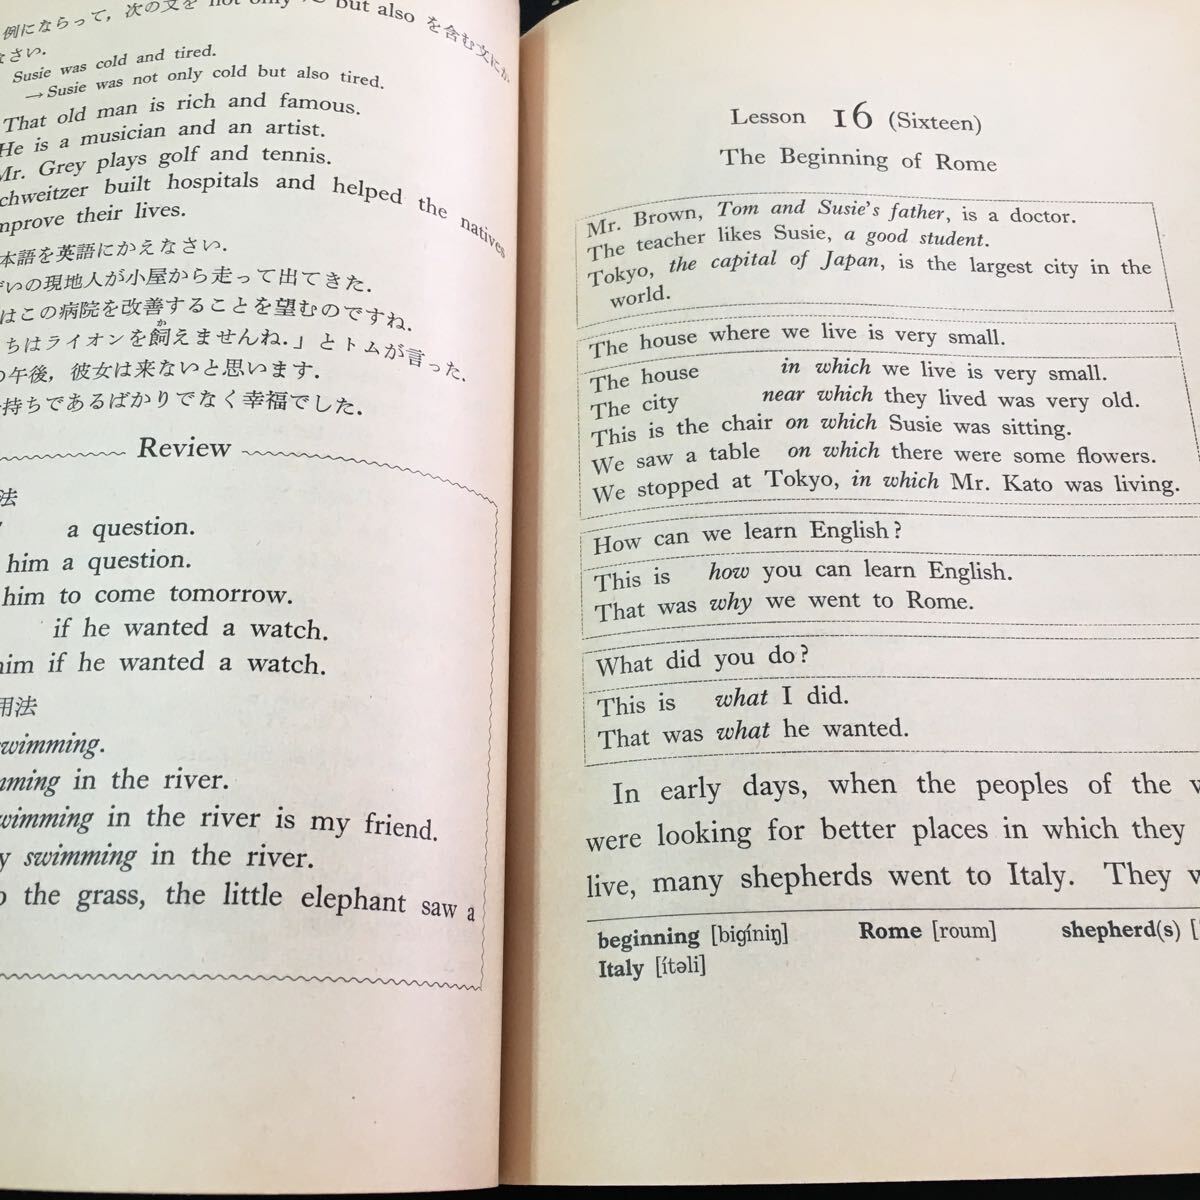 例にならって，次の文を not only ～ but also を含む文にか
なさい.
Susie was cold and tired.
→Susie was not only cold but also tired.
That old man is rich and famous.
He is a musician and an artist.
Mr. Grey plays golf and tennis.
chweitzer built hospitals and helped the natives
mprove their lives.
本語を英語にかえなさい.
ぜいの現地人が小屋から走って出てきた.
はこの病院を改善することを望むのですね.
ちはライオンを飼えませんね.」とトムが言った.
か
の午後，彼女は来ないと思います.
持ちであるばかりでなく幸福でした.
Review
法
a question.
him a question.
him to come tomorrow.
if he wanted a watch.
him if he wanted a watch.
用法
swimming.
mming in the river.
wimming in the river is my friend.
y swimming in the river.
o the grass, the little elephant saw a
Lesson 16 (Sixteen)
The Beginning of Rome
Mr. Brown, Tom and Susie's father, is a doctor.
The teacher likes Susie, a good student.
Tokyo, the capital of Japan, is the largest city in the
world.
The house where we live is very small.
The house in which we live is very small.
The city near which they lived was very old.
This is the chair on which Susie was sitting.
We saw a table on which there were some flowers.
We stopped at Tokyo, in which Mr. Kato was living.
How can we learn English?
This is how you can learn English.
That was why we went to Rome.
What did you do?
This is what I did.
That was what he wanted.
In early days, when the peoples of the w
were looking for better places in which they
live, many shepherds went to Italy. They w
beginning [bigíniŋ] Rome [roum] shepherd(s) [
Italy [ítəli]